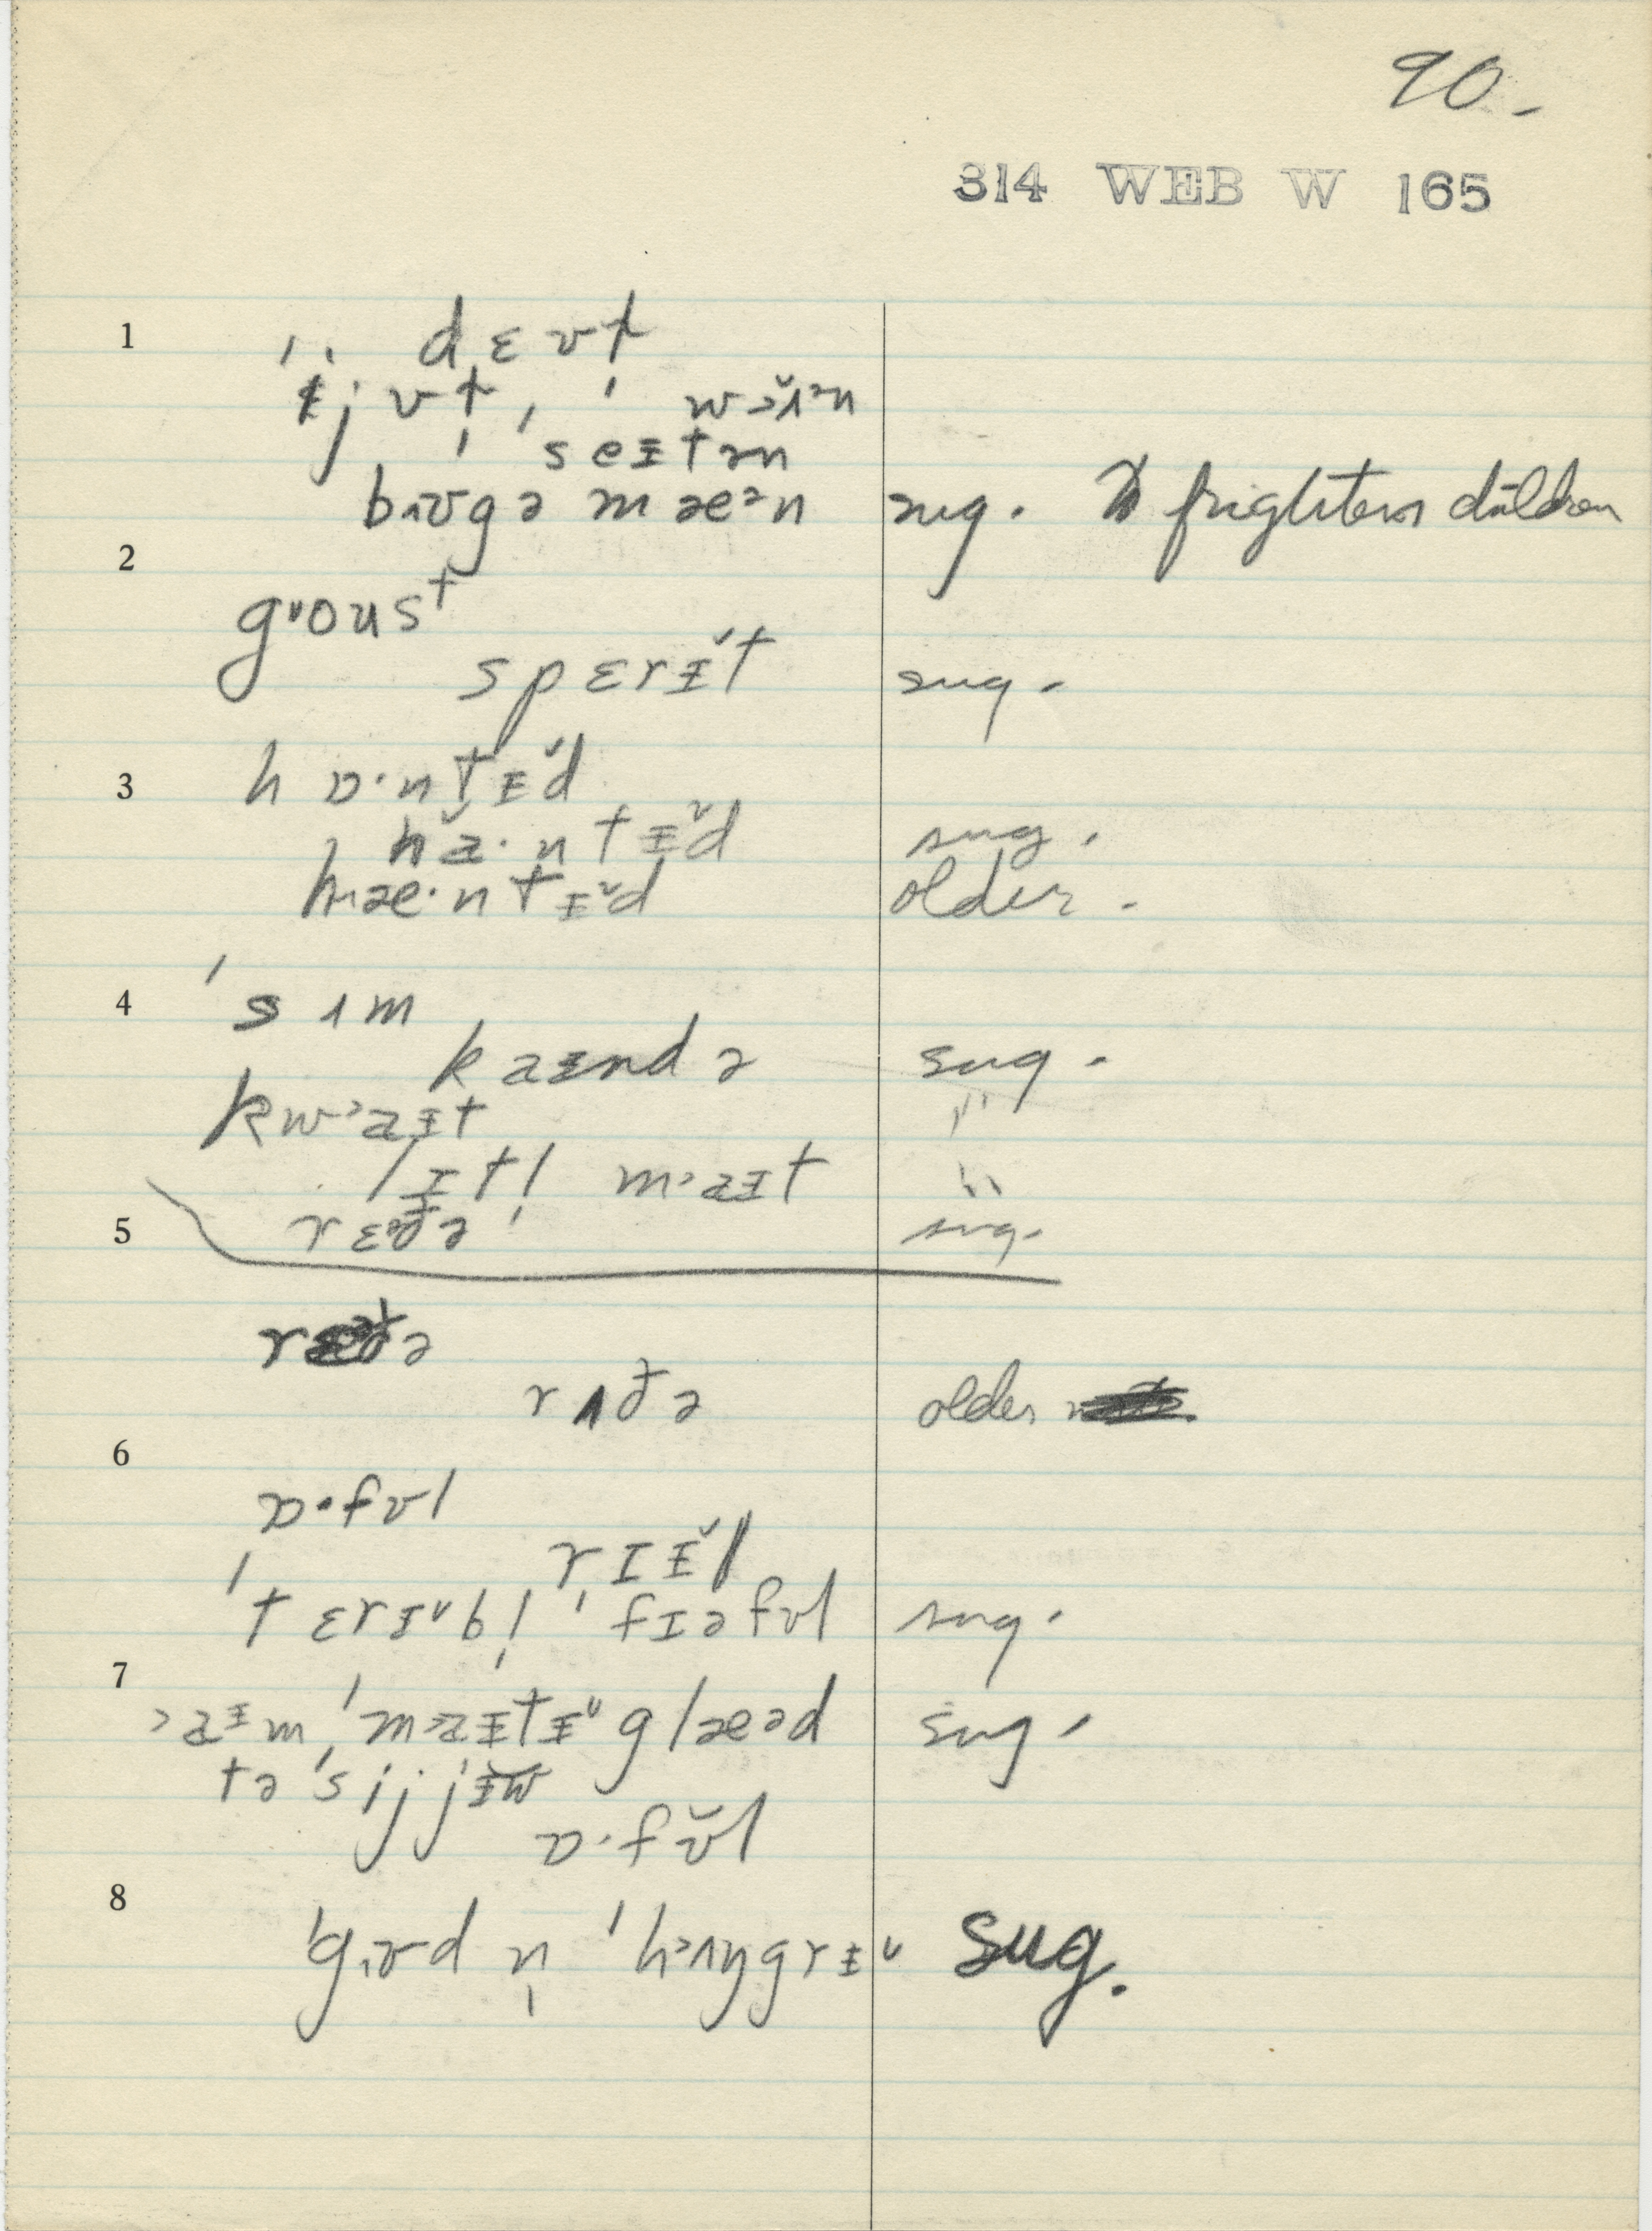 90-
314 WEB W 165
1 dɛvɫ
ijvɫ, wɔ̆ɪᵊn
ˈseɪtən
bʌʊgə mæᵊn sug. To frightens children
2
gᶷoust
spɛrɪ̆t sug.
3 hɒ·ntɪ̆d
ha·ntɪ̆d sug.
hæ·ntɪ̆d older.
4 ˈsʌm
kaɪndə sug.
kwᵓaɪt "
lɪtl̩ mᵓaɪt "
5 rɛᵊðə sug.
rðə
rʌðə older
6
ɒ·fʊl
rɪɪ̆l
ˈtɛrɪ̆bl̩ ˈfɪəfʊl sug.
7
ᵓaɪm ˈmᵓaɪtɪ̆ glæəd sug.
tə ˈsij jɪw
ɒ·fʊ̆l
8
ˈgɪʊd n̩ ˈhʌŋgrɪ̆ sug.